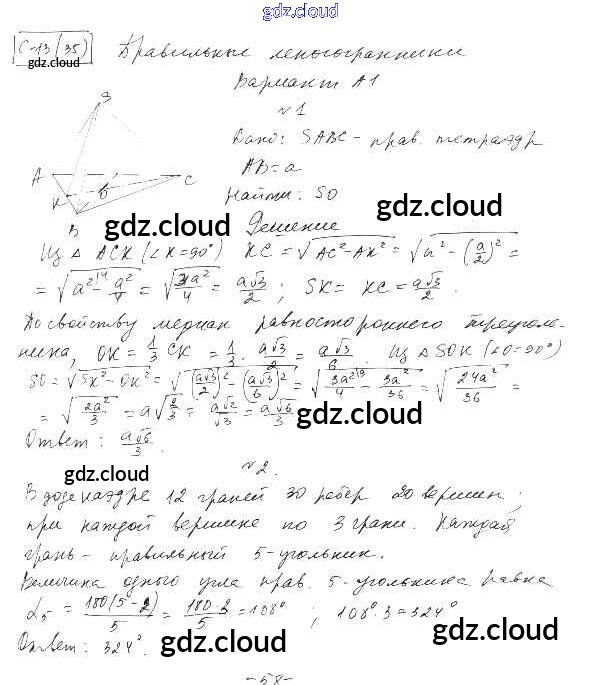 gdz.cloud
С-13 (35) Правильные многогранники
gdz.cloud
Вариант А1
№1
S
Дано: SABC - прав. тетраэдр
A C AB = a
K O
Найти: SO
B gdz.cloud Решение gdz.cloud
Из △ ACK (∠K=90°) KC = √(AC² - AK²) = √(a² - (a/2)²) =
= √(a² - a²/4) = √(3a²/4) = a√3/2 ; SK = KC = a√3/2 .
По свойству медиан равностороннего треуголь-
ника, OK = 1/3 CK = 1/3 · a√3/2 = a√3/6 . Из △ SOK (∠O=90°)
SO = √(SK² - OK²) = √((a√3/2)² - (a√3/6)²) = √(3a²/4 - 3a²/36) = √(24a²/36) =
= √(2a²/3) = a√(2/3) = a√2/√3 = a√6/3 gdz.cloud
Ответ: a√6/3.
gdz.cloud №2.
В додекаэдре 12 граней 30 ребер 20 вершин ;
при каждой вершине по 3 грани. Каждая
грань - правильный 5-угольник.
Величина одного угла прав. 5-угольника равна
α₅ = 180(5-2)/5 = 180·3/5 = 108° ; 108°·3 = 324°
Ответ: 324°. gdz.cloud gdz.cloud
-58-